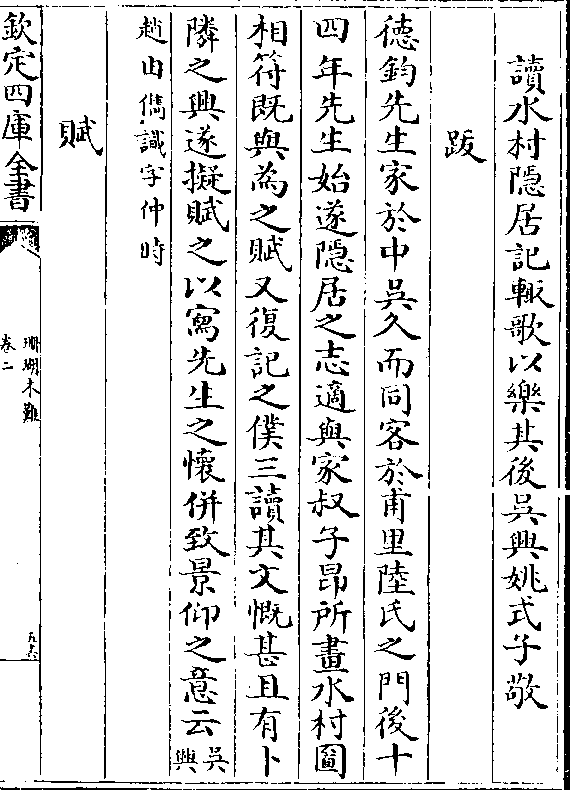 讀水村隱居記輙歌以樂其後吳興姚式子敬
跋
德鈞先生家於中吳久而同客於甫里陸氏之門後十
四年先生始遂隱居之志適與家叔子昂所畫水村圖
相符既與為之賦又復記之僕三讀其文慨甚且有卜
隣之興遂擬賦之以寫先生之懷併致景仰之意云吳興
趙由儁識字仲時
賦
欽定四庫全書
珊瑚木難
卷二
五六